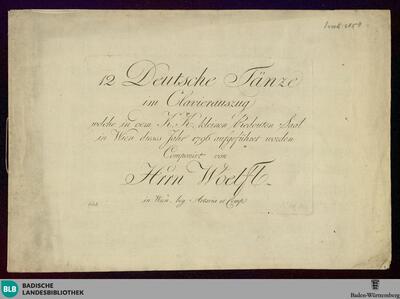 12 Deutsche Tänze
im Clavierauszug
welche in dem K. K. kleinen Redouten Saal
in Wien dieses Jahr 1796 aufgeführet worden
Componirt von
Herrn Woelfl.
in Wien bey Artaria et Comp.
BLB
BADISCHE
LANDESBIBLIOTHEK
Baden-Württemberg